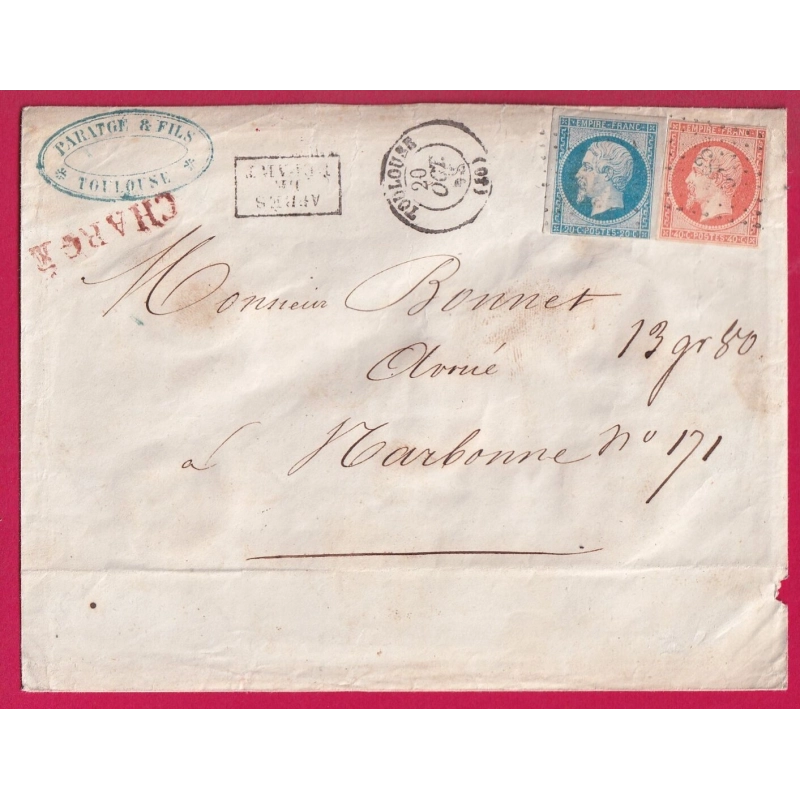 PARATGÉ & FILS
TOULOUSE
CHARGÉ
APRÈS
LE
DÉPART
TOULOUSE (30)
20
OCT.
58
EMPIRE FRANC
20·C·POSTES·20·C
EMPIRE FRANC
40·C·POSTES·40·C
Monsieur Bonnet
13 gr 80
Avoué
a Narbonne
N° 171